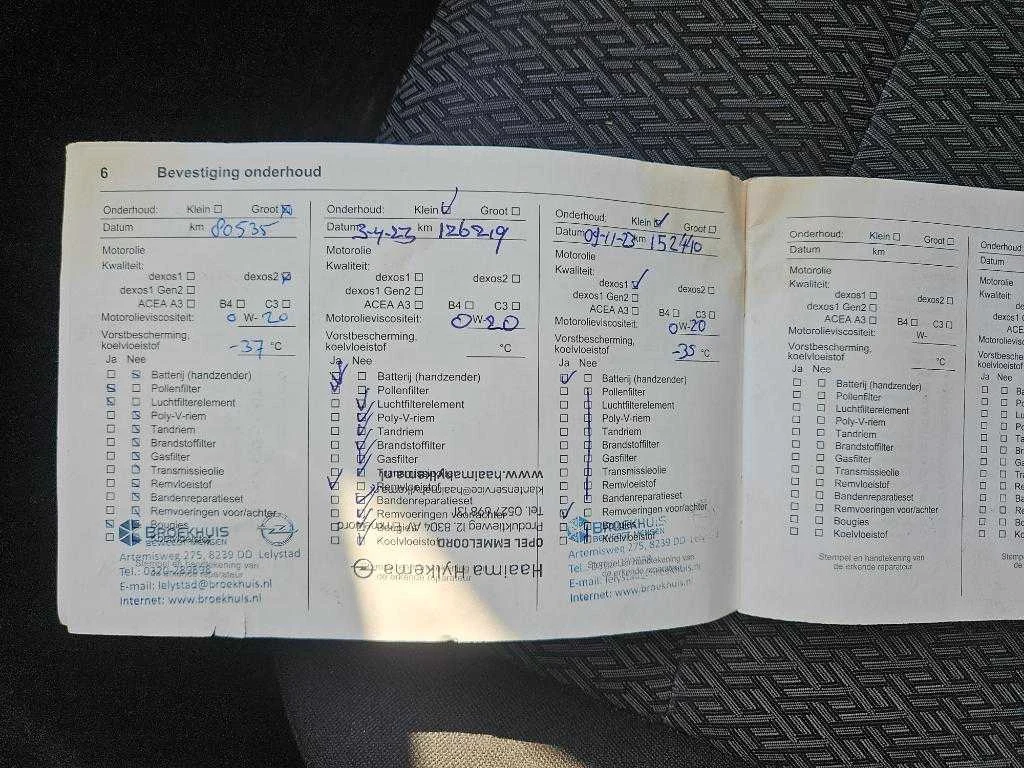 6 Bevestiging onderhoud
Onderhoud: Klein Groot
Datum km 80535
Motorolie
Kwaliteit:
dexos1 dexos2
dexos1 Gen2
ACEA A3 B4 C3
Motorolieviscositeit: 0 W- 20
Vorstbescherming,
koelvloeistof -37 °C
Ja Nee
Batterij (handzender)
Pollenfilter
Luchtfilterelement
Poly-V-riem
Tandriem
Brandstoffilter
Gasfilter
Transmissieolie
Remvloeistof
Bandenreparatieset
Remvoeringen voor/achter
Bougies
BROEKHUIS
Artemisweg 275, 8239 DD Lelystad
Stempel en handtekening van
de erkende reparateur
E-mail: lelystad@broekhuis.nl
Internet: www.broekhuis.nl
Onderhoud: Klein Groot
Datum 3-4-23 km 126219
Motorolie
Kwaliteit:
dexos1 dexos2
dexos1 Gen2
ACEA A3 B4 C3
Motorolieviscositeit: 0 W-20
Vorstbescherming,
koelvloeistof °C
Ja Nee
Batterij (handzender)
Pollenfilter
Luchtfilterelement
Poly-V-riem
Tandriem
Brandstoffilter
Gasfilter
Remvloeistof
Bandenreparatieset
Remvoeringen voor/achter
Bougies
Koelvloeistof
de erkende reparateur
Haaima Hylkema
OPEL EMMELOORD
Produktieweg 12, 8304 AV
www.haaimahylkema.nl
Onderhoud: Klein Groot
Datum 09-11-23 km 152410
Motorolie
Kwaliteit:
dexos1 dexos2
dexos1 Gen2
ACEA A3 B4 C3
Motorolieviscositeit: 0 W-20
Vorstbescherming,
koelvloeistof -35 °C
Ja Nee
Batterij (handzender)
Pollenfilter
Luchtfilterelement
Poly-V-riem
Tandriem
Brandstoffilter
Gasfilter
Transmissieolie
Remvloeistof
Bandenreparatieset
Remvoeringen voor/achter
Bougies
Koelvloeistof
BROEKHUIS
Artemisweg 275, 8239 DD
Stempel en handtekening van
de erkende reparateur
E-mail: lelystad@broekhuis.nl
Internet: www.broekhuis.nl
Onderhoud: Klein Groot
Datum km
Motorolie
Kwaliteit:
dexos1 dexos2
dexos1 Gen2
ACEA A3 B4 C3
Motorolieviscositeit: W-
Vorstbescherming,
koelvloeistof °C
Ja Nee
Batterij (handzender)
Pollenfilter
Luchtfilterelement
Poly-V-riem
Tandriem
Brandstoffilter
Gasfilter
Transmissieolie
Remvloeistof
Bandenreparatieset
Remvoeringen voor/achter
Bougies
Koelvloeistof
Stempel en handtekening van
de erkende reparateur
Onderhoud
Datum
Motorolie
Kwaliteit:
Ja Nee